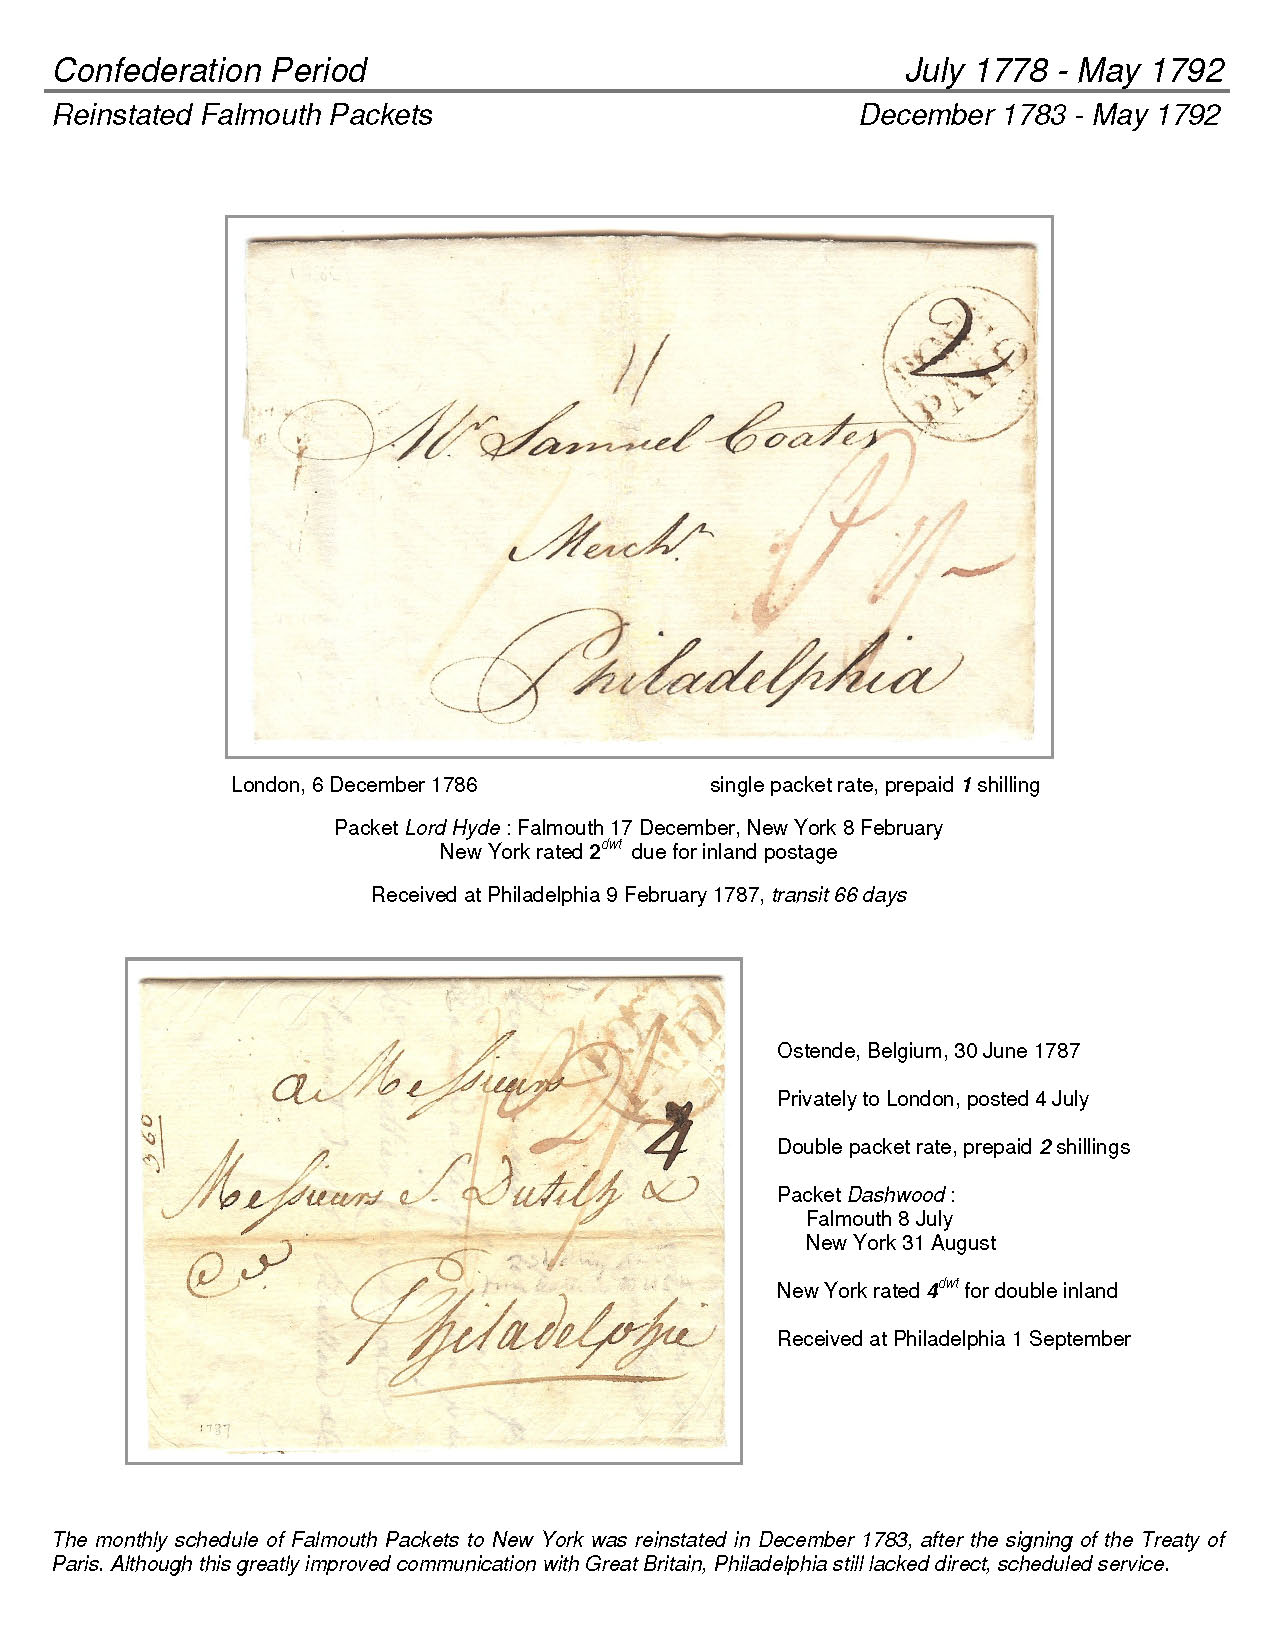 Confederation Period July 1778 - May 1792
Reinstated Falmouth Packets December 1783 - May 1792
2
POST
PAID
11
Mr. Samuel Coates
Mercht.
Philadelphia
London, 6 December 1786 single packet rate, prepaid 1 shilling
Packet Lord Hyde : Falmouth 17 December, New York 8 February
New York rated 2dwt due for inland postage
Received at Philadelphia 9 February 1787, transit 66 days
a Messieurs
4
360
Messieurs S. Dutilh &
Co.
Philadelphie
1787
Ostende, Belgium, 30 June 1787
Privately to London, posted 4 July
Double packet rate, prepaid 2 shillings
Packet Dashwood :
Falmouth 8 July
New York 31 August
New York rated 4dwt for double inland
Received at Philadelphia 1 September
The monthly schedule of Falmouth Packets to New York was reinstated in December 1783, after the signing of the Treaty of
Paris. Although this greatly improved communication with Great Britain, Philadelphia still lacked direct, scheduled service.